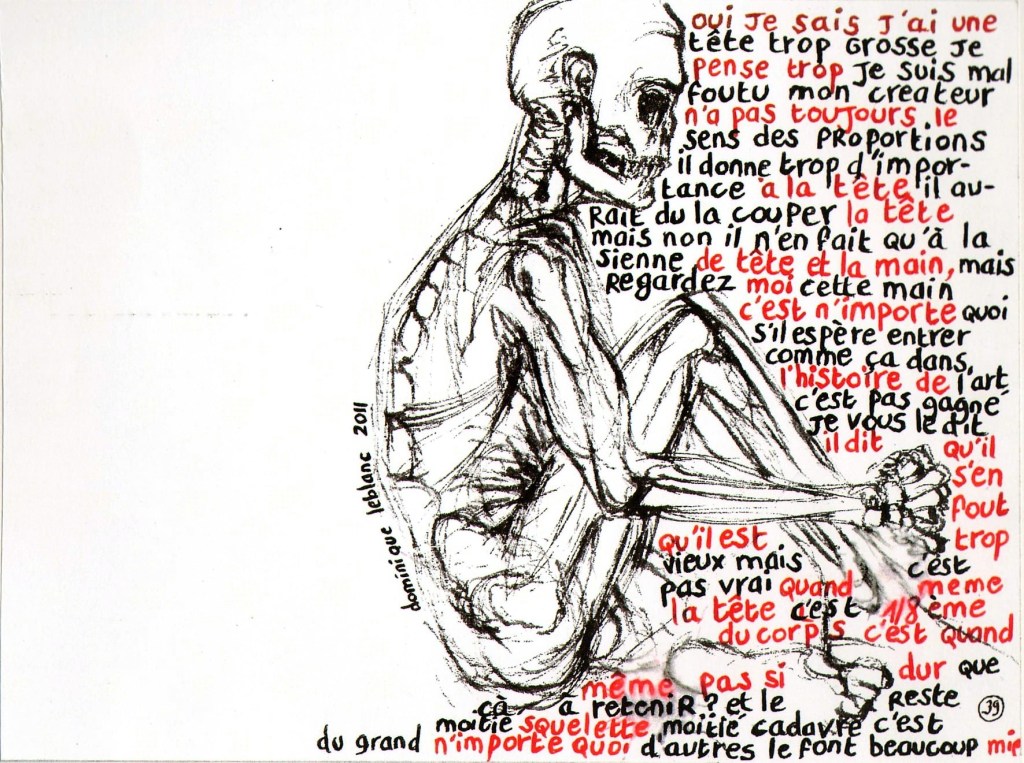 oui je sais j'ai une
tête trop grosse je
pense trop je suis mal
foutu mon createur
n'a pas toujours le
sens des proportions
il donne trop d'impor-
tance à la tête il au-
rait du la couper la tête
mais non il n'en fait qu'à la
sienne de tête et la main, mais
regardez moi cette main
c'est n'importe quoi
s'il espère entrer
comme ça dans,
l'histoire de l'art
c'est pas gagné
je vous le dit
il dit qu'il
s'en
fout
qu'il est trop
vieux mais c'est
pas vrai quand meme
la tête c'est 1/8 ème
du corps c'est quand
même pas si dur que
çà à retenir ? et le reste
moitié squelette moitié cadavre c'est
du grand n'importe quoi d'autres le font beaucoup
dominique leblanc 2011
39